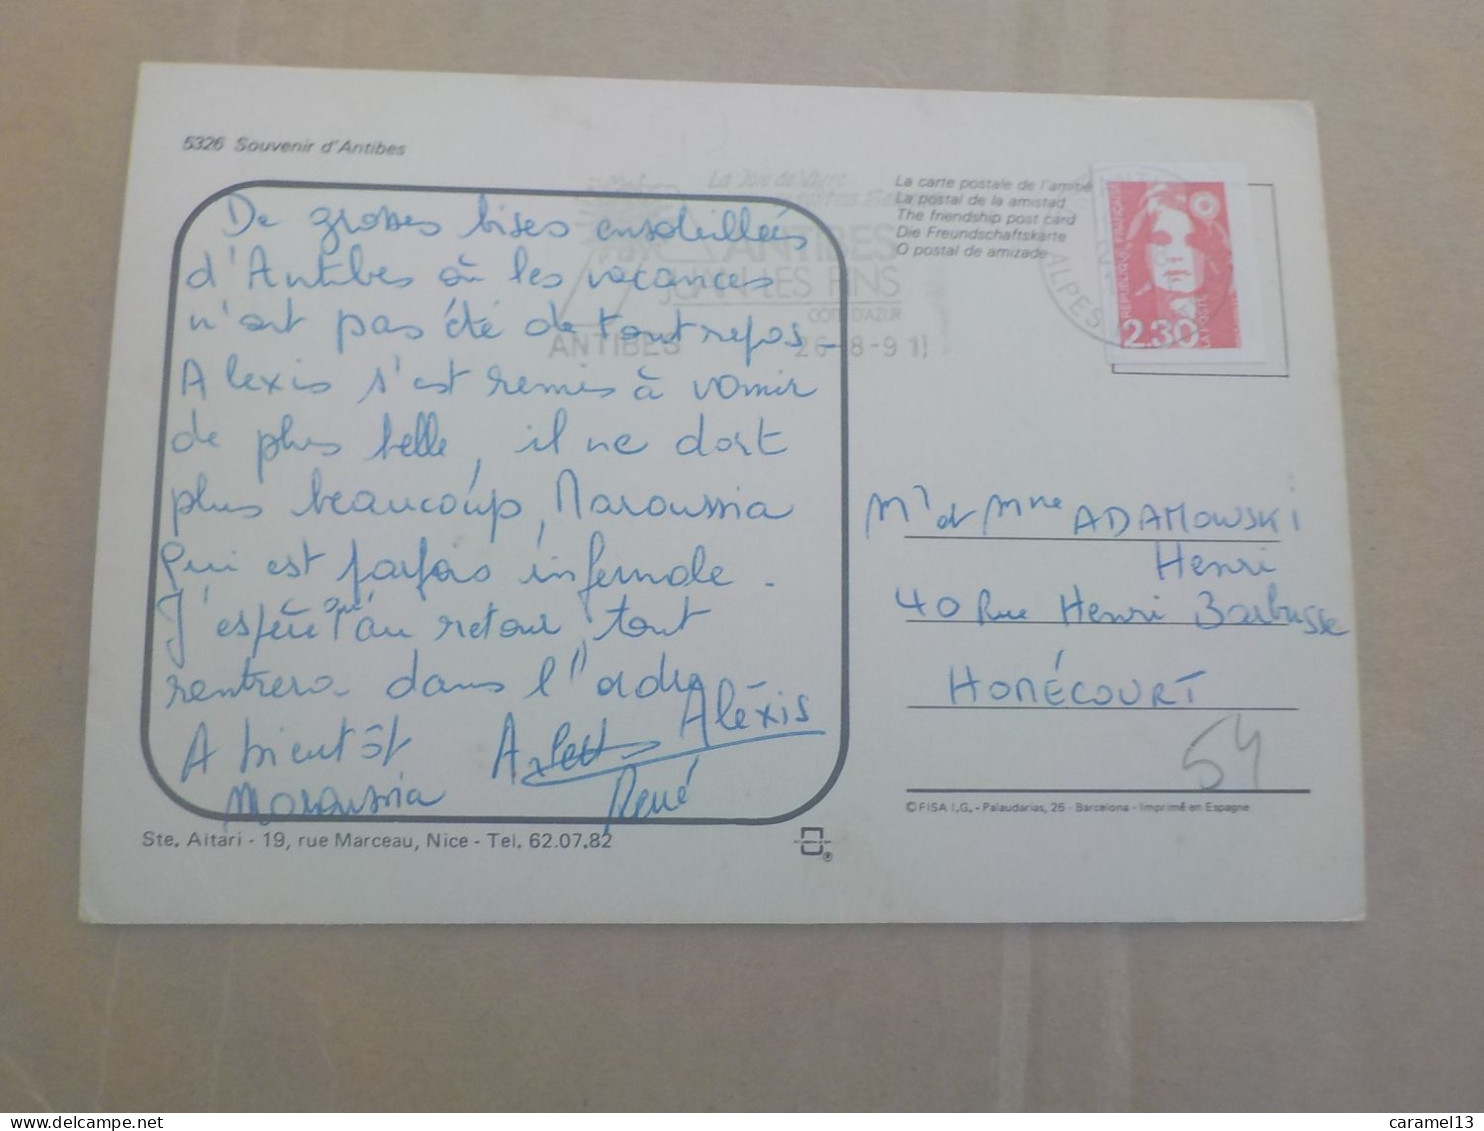 5326 Souvenir d'Antibes
De grosses bises ensoleillées
d'Antibes où les vacances
n'ont pas été de tout repos.
Alexis s'est remis à vomir
de plus belle, il ne dort
plus beaucoup, Maroussia
qui est parfois infernale.
J'espère qu'au retour, tout
rentrera dans l'ordre
A bientôt Alexis
Maroussia René
Ste. Altari - 19, rue Marceau, Nice - Tel. 62.07.82
La Joie de Vivre
ANTIBES
JUAN-LES-PINS
CÔTE D'AZUR
ANTIBES 26-8-91
La carte postale de l'amitié
La postal de la amistad
The friendship post card
Die Freundschaftskarte
O postal de amizade
ALPES
REPUBLIQUE FRANÇAISE
2.30
LA POSTE
Mr et Mme ADAMOWSKI
Henri
40 Rue Henri Barbusse
HOMÉCOURT
54
© FISA I.G. - Palaudarias, 26 - Barcelona - Imprimé en Espagne
caramel13